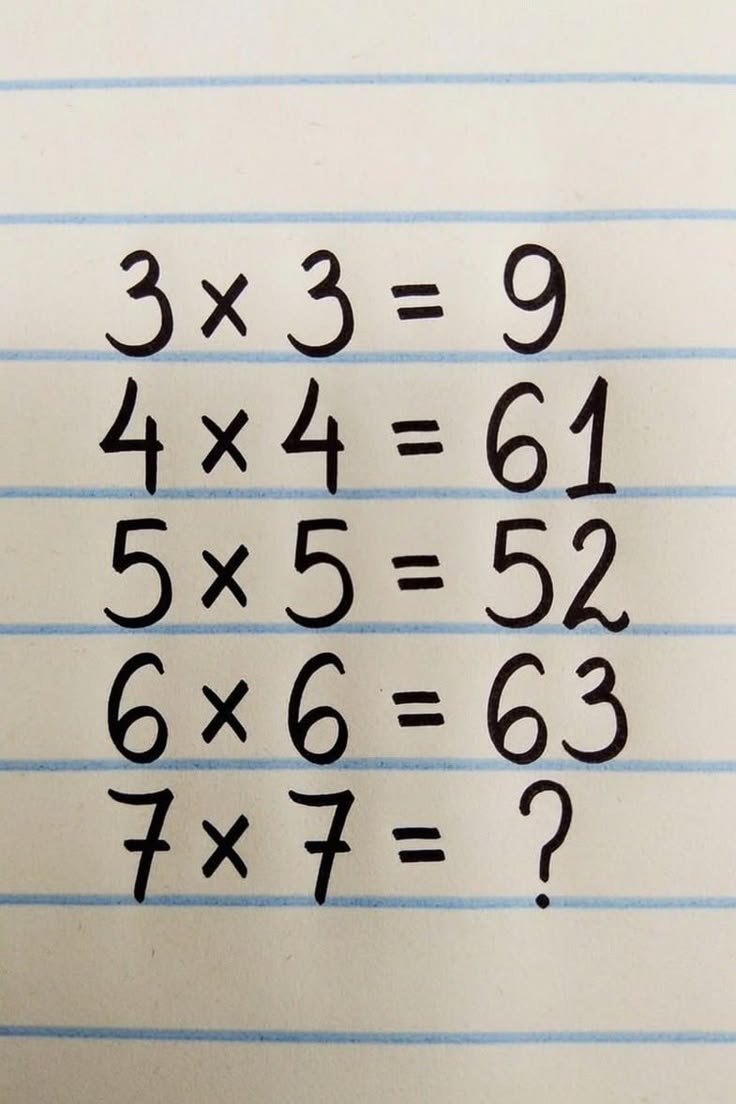 3 × 3 = 9
4 × 4 = 61
5 × 5 = 52
6 × 6 = 63
7 × 7 = ?